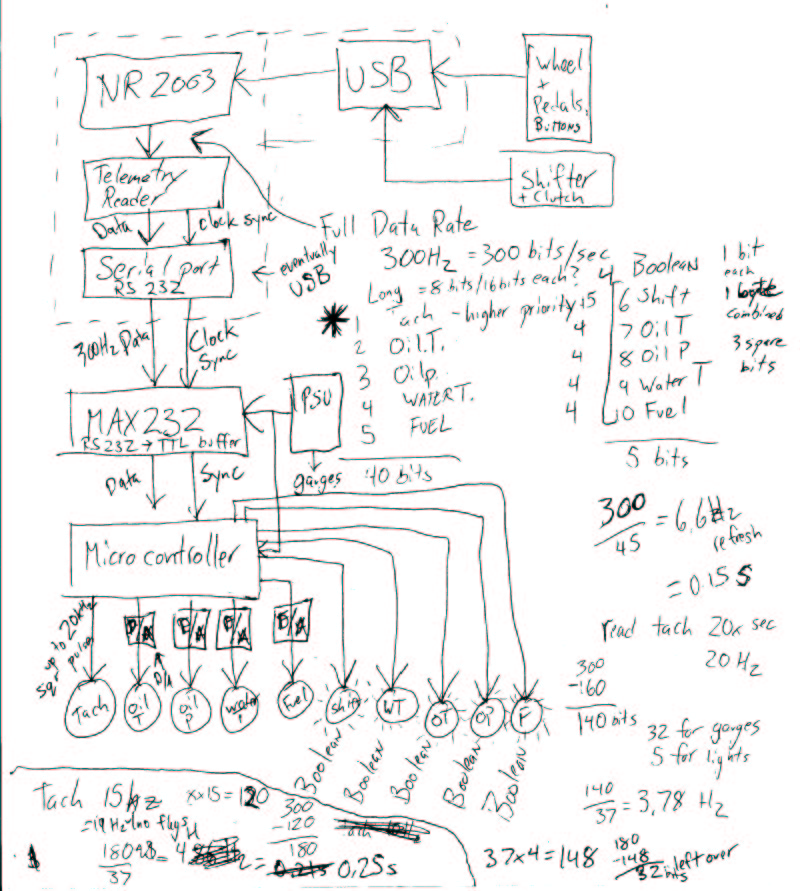 NR 2003
USB
Wheel
+
Pedals,
BUTTONS
Shifter
+ Clutch
Telemetry
Reader
Data
Clock Sync
Serial port
RS 232
← eventually
USB
Full Data Rate
300Hz = 300 bits/sec
Long = 8 bits/16 bits each?
1 Tach - higher priority +5
2 Oil.T. 4
3 Oilp. 4
4 WATER T. 4
5 FUEL 4
40 bits
4 Boolean
6 Shift
7 Oil T
8 Oil P
9 Water T
10 Fuel
5 bits
1 bit
each
combined
3 spare
bits
300Hz Data
Clock
Sync
MAX 232
RS232 → TTL buffer
PSU
gauges
Data
Sync
Micro controller
up to 20kHz
sqr pulses
D/A
D/A
D/A
D/A
D/A
Tach
Oil
T
Oil
P
Water
T
Fuel
Shift
WT
OT
OP
F
Boolean
Boolean
Boolean
Boolean
Boolean
300/45 = 6.6Hz
refresh
= 0.15 s
read tach 20x sec
20 Hz
300
-160
140 bits
32 for gauges
5 for lights
140/37 = 3.78 Hz
Tach 15hz x x 15 = 120
300
-120
180
180
37
0.25s
37x4 = 148
180
-148
32 left over
bits